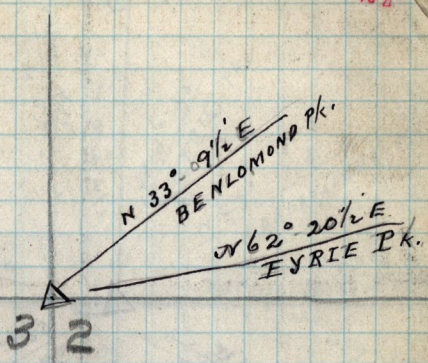 N 33° 09½' E
BENLOMOND Pk.
N 62° 20½' E
EYRIE Pk.
3 2